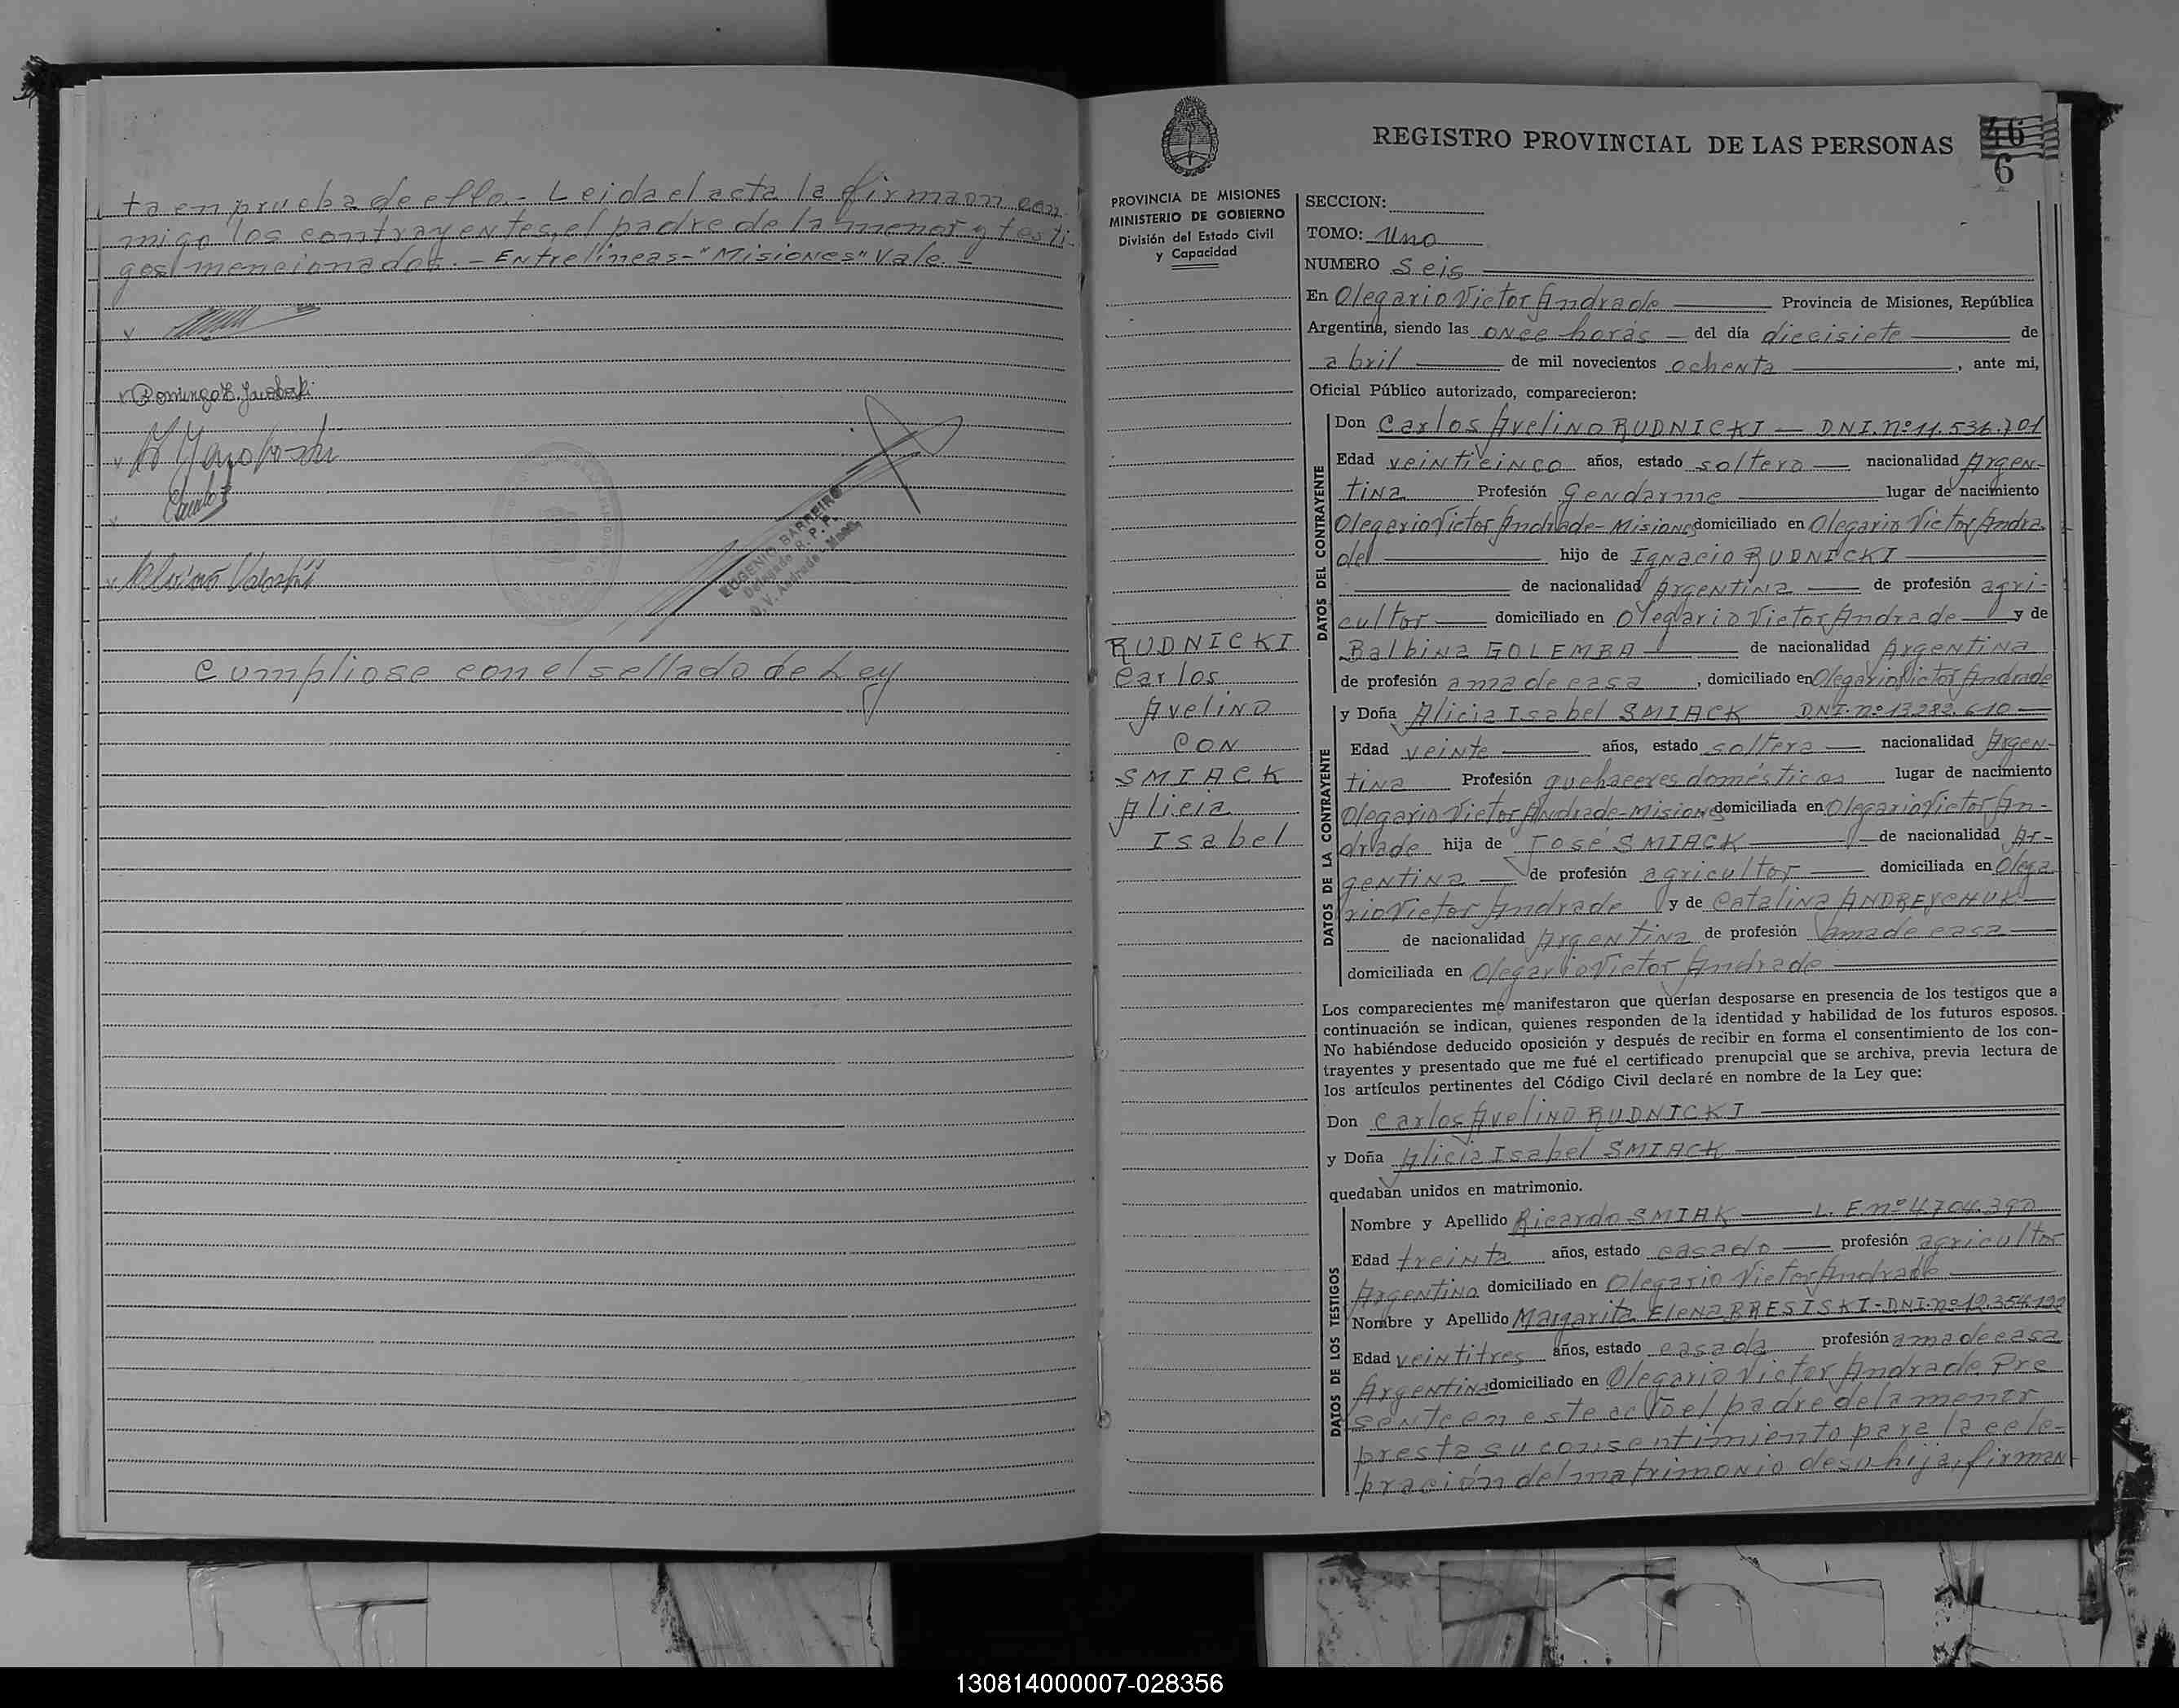 ta en prueba de ello.- Leida el acta la firmaon con
migo los contrayentes, el padre de la menor y testi-
gos mencionados.- Entrelíneas-"Misiones" Vale.-
EUGENIO BARREIRO
Delegado R.P.P.
O.V. Andrade - Mnes.
Cumpliose con el sellado de Ley
REGISTRO PROVINCIAL DE LAS PERSONAS
46
6
PROVINCIA DE MISIONES
MINISTERIO DE GOBIERNO
División del Estado Civil
y Capacidad
RUDNICKI
Carlos
Avelino
CON
SMIACK
Alicia
Isabel
SECCION:
TOMO: Uno
NUMERO Seis
En Olegario Victor Andrade Provincia de Misiones, República
Argentina, siendo las once horas del día diecisiete de
abril de mil novecientos ochenta, ante mi,
Oficial Público autorizado, comparecieron:
DATOS DEL CONTRAYENTE
Don Carlos Avelino RUDNICKI - DNI. nº 11.536.701
Edad veinticinco años, estado soltero nacionalidad Argen-
tina Profesión Gendarme lugar de nacimiento
Olegario Victor Andrade-Misiones domiciliado en Olegario Victor Andra
de hijo de Ignacio RUDNICKI
de nacionalidad Argentina de profesión agri-
cultor domiciliado en Olegario Victor Andrade y de
Balbina GOLEMBA de nacionalidad Argentina
de profesión ama de casa, domiciliado en Olegario Victor Andrade
DATOS DE LA CONTRAYENTE
y Doña Alicia Isabel SMIACK DNI. nº 13.282.610
Edad veinte años, estado soltera nacionalidad Argen-
tina Profesión quehaceres domésticos lugar de nacimiento
Olegario Victor Andrade-Misiones domiciliada en Olegario Victor An-
drade hija de José SMIACK de nacionalidad Ar-
gentina de profesión agricultor domiciliada en Olega
rio Victor Andrade y de Catalina ANDREYCHUK
de nacionalidad Argentina de profesión ama de casa
domiciliada en Olegario Victor Andrade
Los comparecientes me manifestaron que querían desposarse en presencia de los testigos que a
continuación se indican, quienes responden de la identidad y habilidad de los futuros esposos.
No habiéndose deducido oposición y después de recibir en forma el consentimiento de los con-
trayentes y presentado que me fué el certificado prenupcial que se archiva, previa lectura de
los artículos pertinentes del Código Civil declaré en nombre de la Ley que:
Don Carlos Avelino RUDNICKI
y Doña Alicia Isabel SMIACK
quedaban unidos en matrimonio.
DATOS DE LOS TESTIGOS
Nombre y Apellido Ricardo SMIAK L. E. nº 4.704.390
Edad treinta años, estado casado profesión agricultor
Argentino domiciliado en Olegario Victor Andrade
Nombre y Apellido Margarita Elena BRESISKI-DNI. nº 12.354.122
Edad veintitres años, estado casada profesión ama de casa
Argentina domiciliado en Olegario Victor Andrade. Pre
sente en este acto el padre de la menor
presta su consentimiento para la cele-
bración del matrimonio de su hija, firman
130814000007-028356